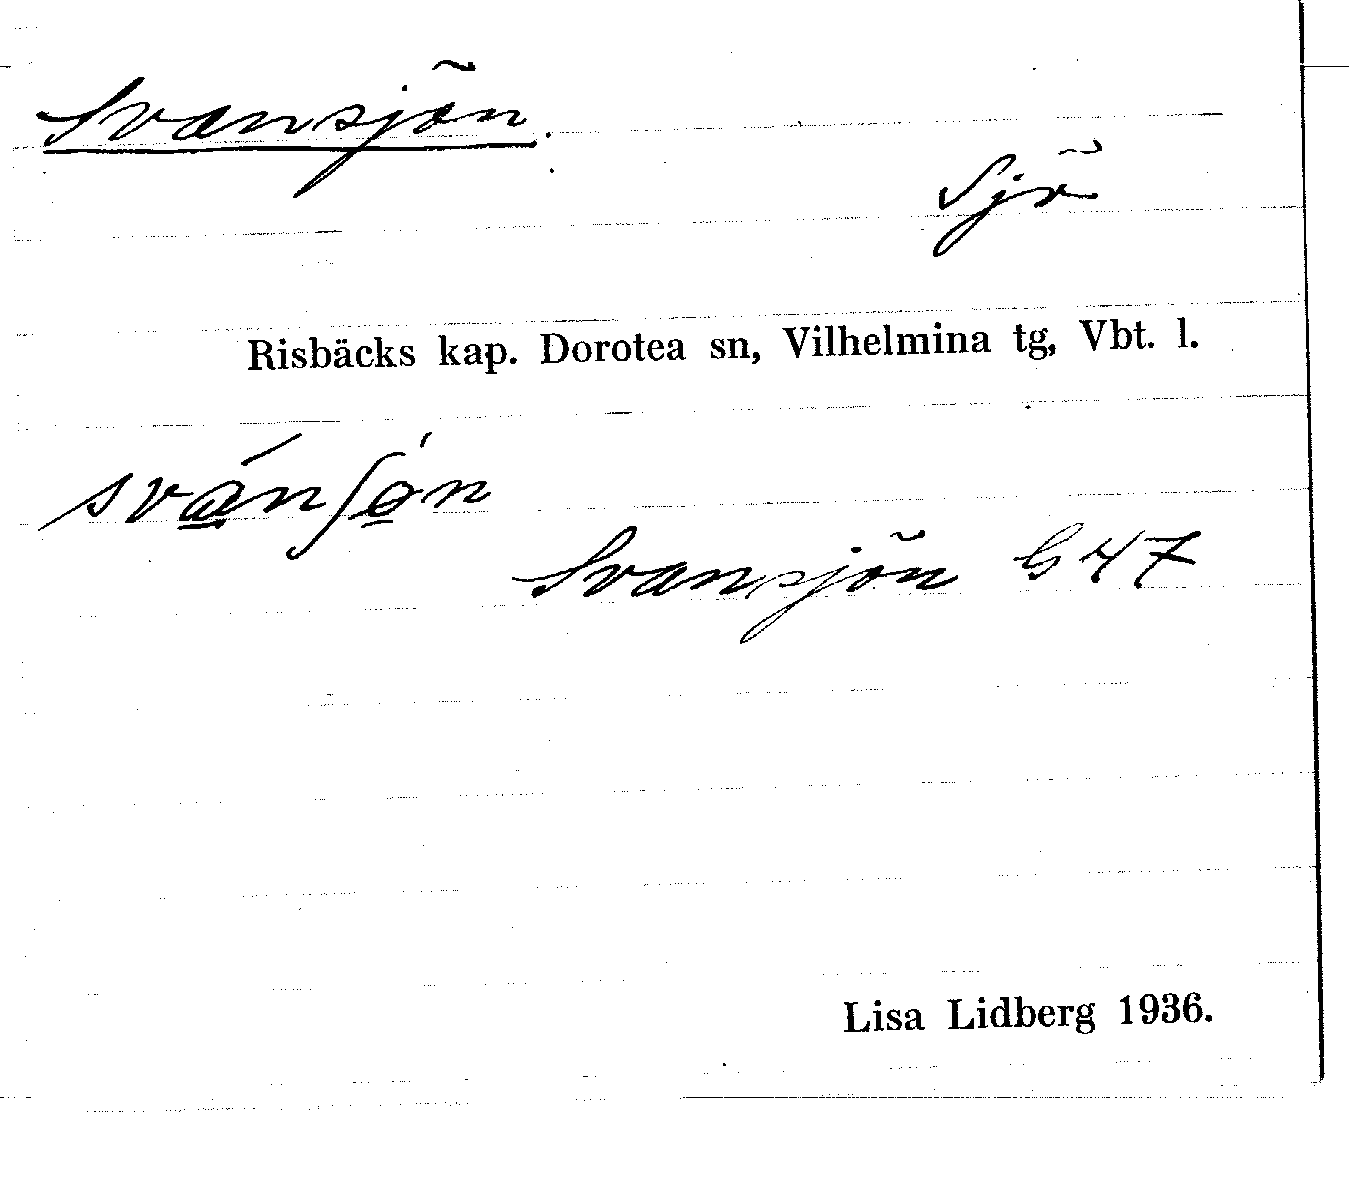 Svansjön.
Sjö
Risbäcks kap. Dorotea sn, Vilhelmina tg, Vbt. l.
svánʃǿn
Svansjön G 47
Lisa Lidberg 1936.